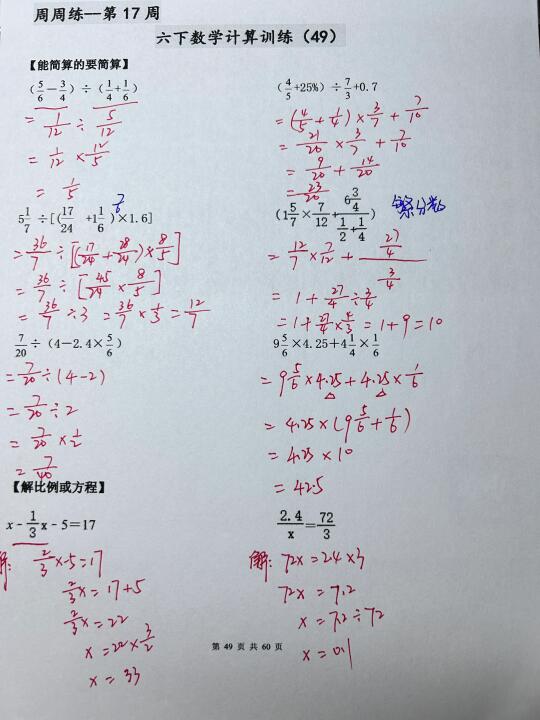 周周练——第 17 周
六下数学计算训练（49）
【能简算的要简算】
(5/6－3/4) ÷ (1/4＋1/6)
= 1/12 ÷ 5/12
= 1/12 × 12/5
= 1/5
(4/5+25%) ÷ 7/3+0.7
= (4/5 + 1/4) × 3/7 + 7/10
= 21/20 × 3/7 + 7/10
= 9/20 + 14/20
= 23/20
5 1/7 ÷[(17/24 +1 1/6)×1.6]
7/6
= 36/7 ÷ [(17/24 + 28/24) × 8/5]
= 36/7 ÷ [45/24 × 8/5]
= 36/7 ÷ 3 = 36/7 × 1/3 = 12/7
(1 5/7 × 7/12 + 6 3/4 / 1/2 + 1/4)
繁分数
= 12/7 × 7/12 + 27/4 / 3/4
= 1 + 27/4 ÷ 3/4
= 1 + 27/4 × 4/3 = 1 + 9 = 10
7/20 ÷（4－2.4× 5/6）
= 7/20 ÷ (4-2)
= 7/20 ÷ 2
= 7/20 × 1/2
= 7/40
9 5/6 ×4.25+4 1/4 × 1/6
= 9 5/6 × 4.25 + 4.25 × 1/6
= 4.25 × (9 5/6 + 1/6)
= 4.25 × 10
= 42.5
【解比例或方程】
x - 1/3 x－5=17
解: 2/3 x-5=17
2/3 x = 17+5
2/3 x = 22
x = 22 × 3/2
x = 33
2.4/x = 72/3
解: 72x = 2.4×3
72x = 7.2
x = 7.2÷72
x = 0.1
第 49 页 共 60 页